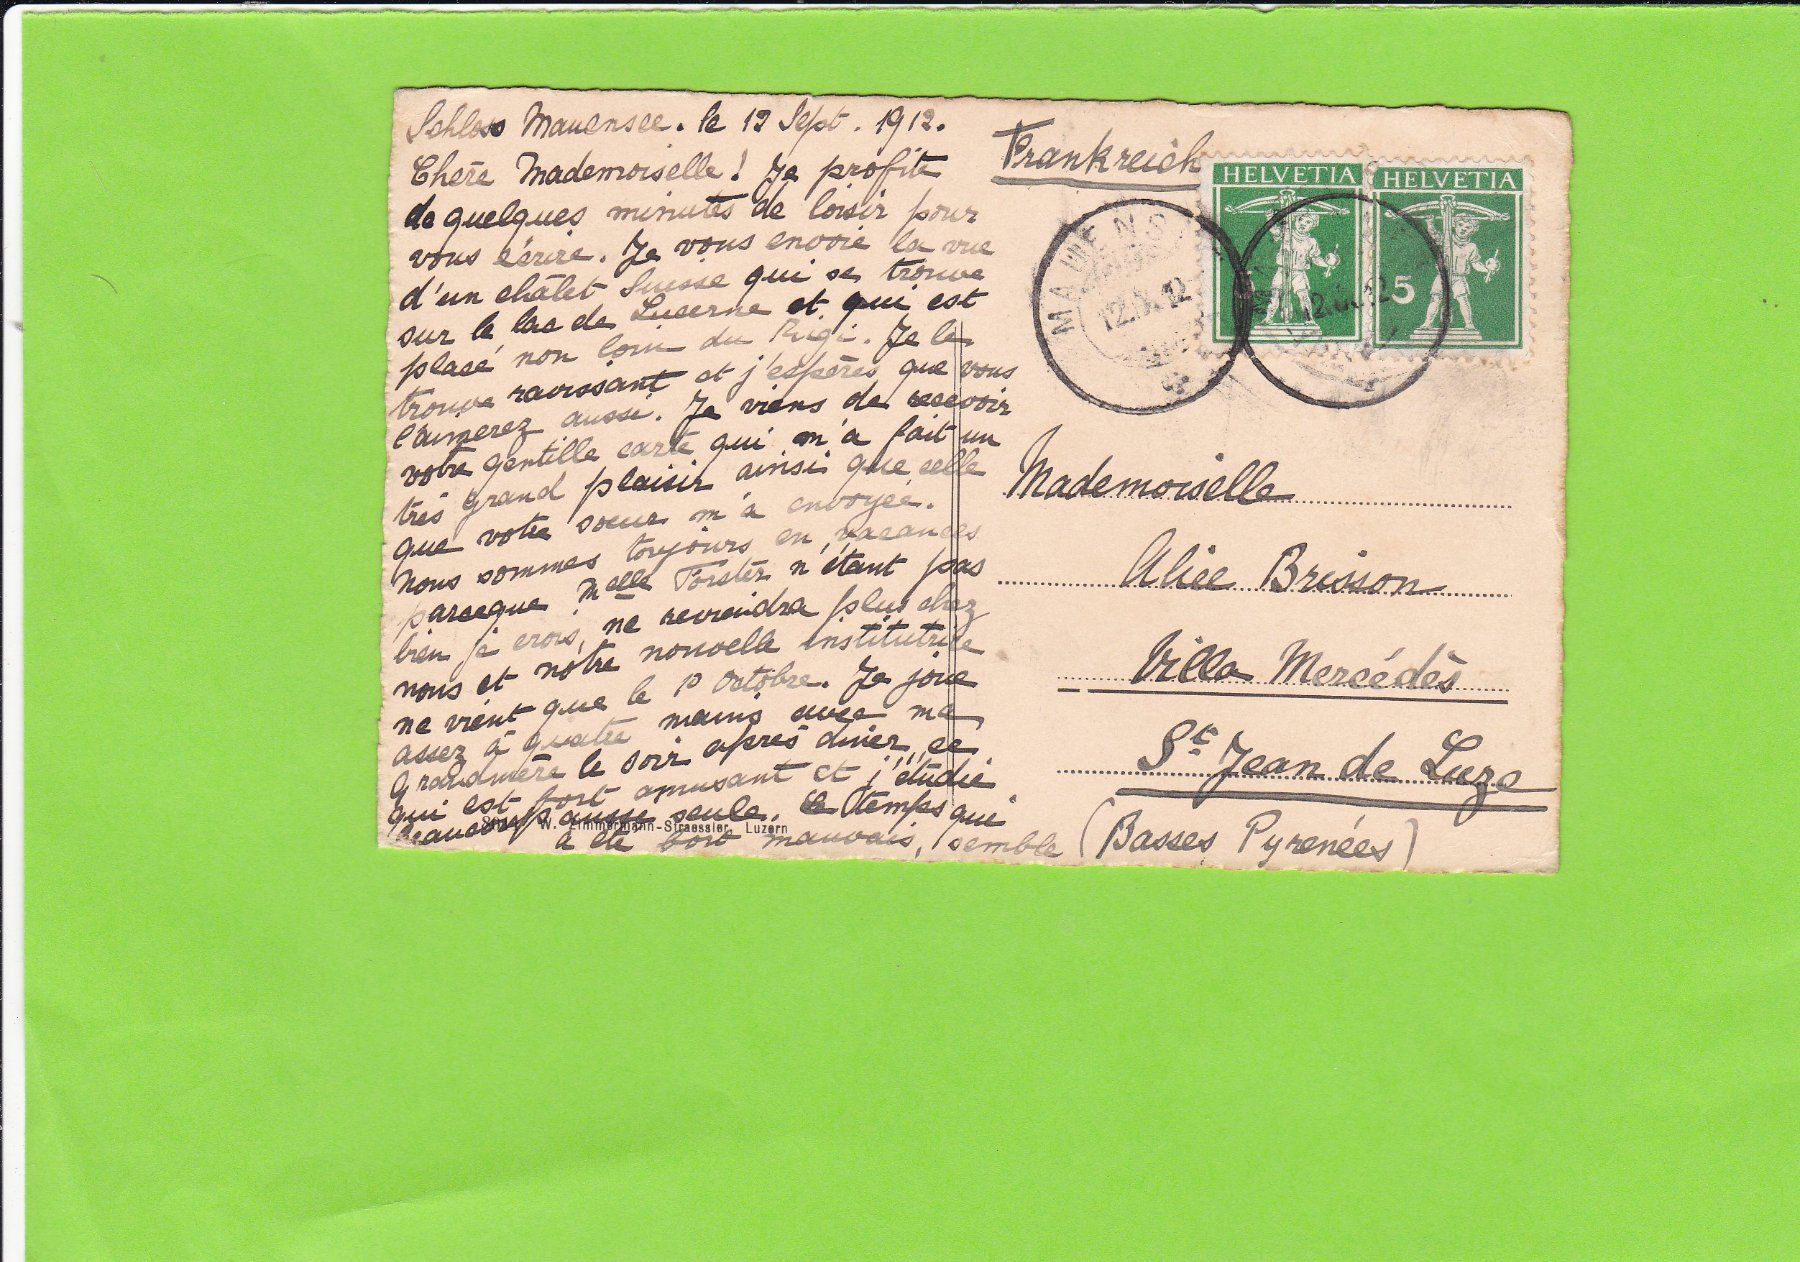 Schloss Mauensee. le 12 Sept. 1912.
Chère Mademoiselle! Je profite
de quelques minutes de loisir pour
vous écrire. Je vous envoie la vue
d'un châlet Suisse qui se trouve
sur le lac de Lucerne et qui est
placé non loin du Rigi. Je le
trouve ravissant et j'espères que vous
l'aimerez aussi. Je viens de recevoir
votre gentille carte qui m'a fait un
très grand plaisir ainsi que celle
que votre soeur m'a envoyée.
Nous sommes toujours en vacances
parceque Melle Forster n'étant pas
bien je crois, ne reviendra plus chez
nous et notre nouvelle institutrice
ne vient que le 1º Octobre. Je joue
assez à quatre mains avec ma
grandmère le soir après diner, ce
qui est fort amusant et j'étudie
beaucoup aussi seule. Le temps qui
a été fort mauvais, semble
W. Zimmermann-Straessler, Luzern
Frankreich
HELVETIA
HELVETIA
5
MAUENS
12.IX.12
12
Mademoiselle
Alice Brisson
Villa Mercédès
St Jean de Luze
(Basses Pyrenées)